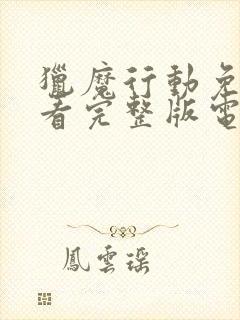 獵魔行動免
看完整版電
鳳雲瑶